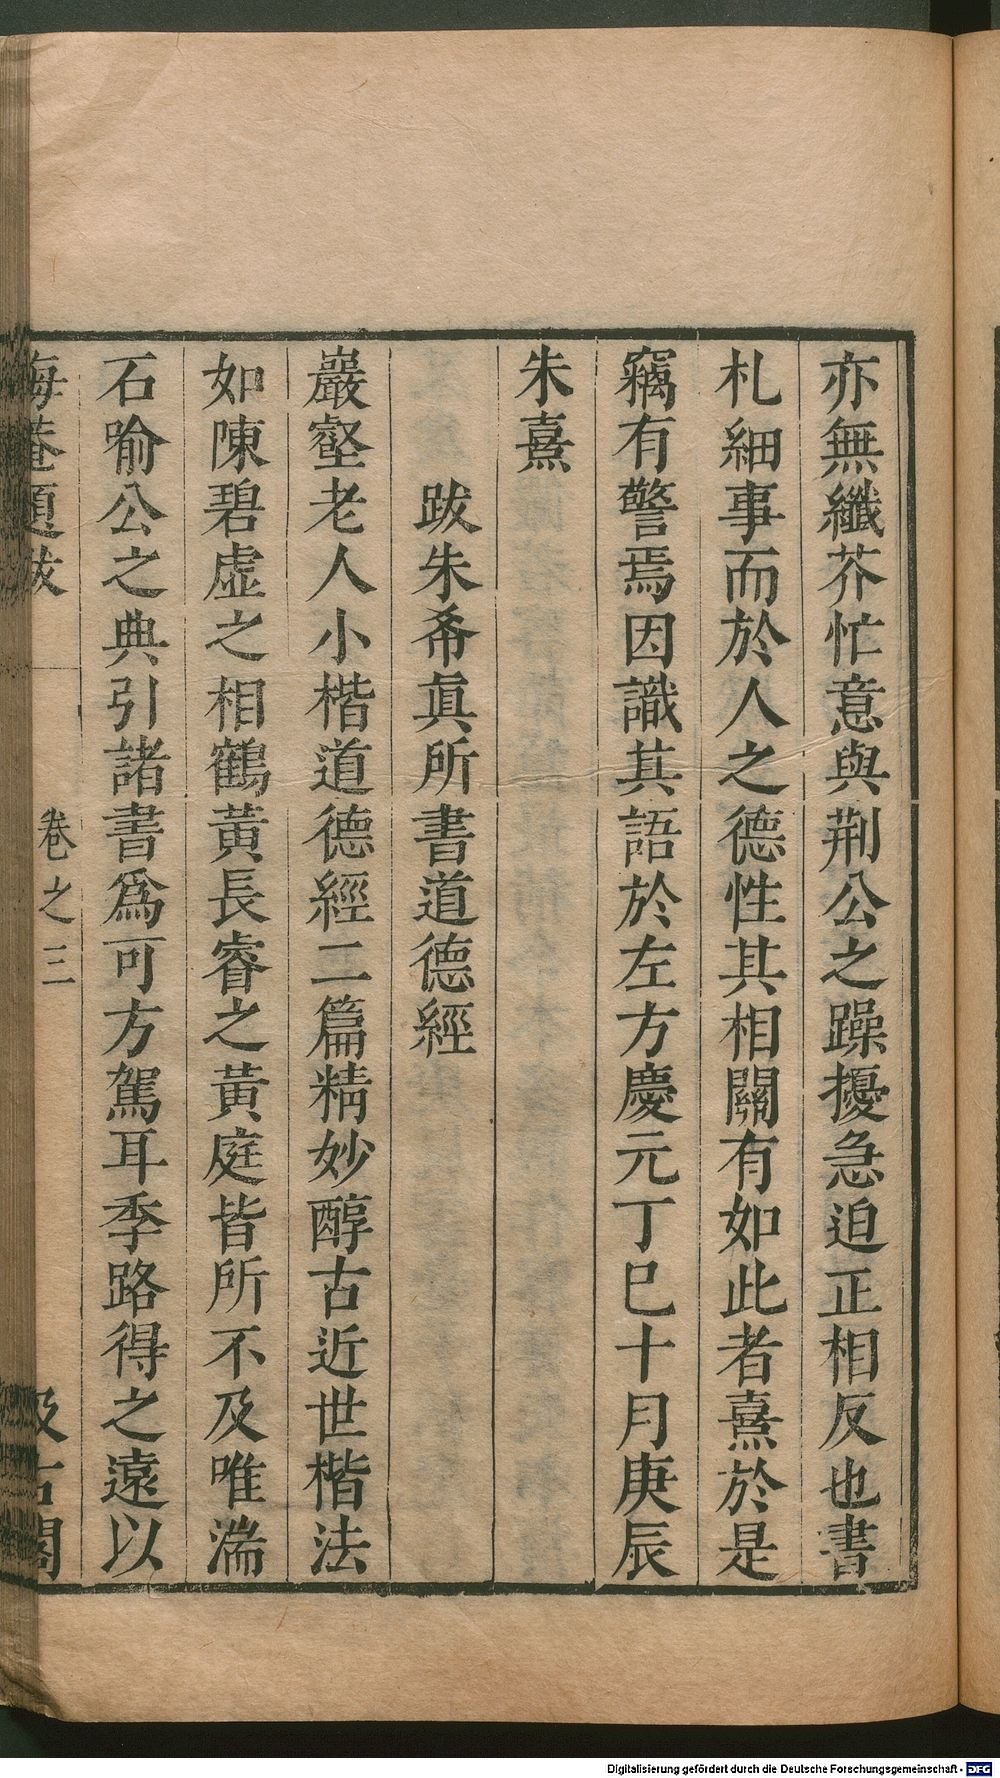 亦無纖芥忙意與荆公之躁擾急迫正相反也書
札細事而於人之德性其相關有如此者熹於是
竊有警焉因識其語於左方慶元丁巳十月庚辰
朱熹
跋朱希眞所書道德經
巖壑老人小楷道德經二篇精妙醇古近世楷法
如陳碧虛之相鶴黃長睿之黃庭皆所不及唯湍
石喻公之典引諸書爲可方駕耳季路得之遠以
晦菴題跋 卷之三 汲古閣
Digitalisierung gefördert durch die Deutsche Forschungsgemeinschaft - DFG